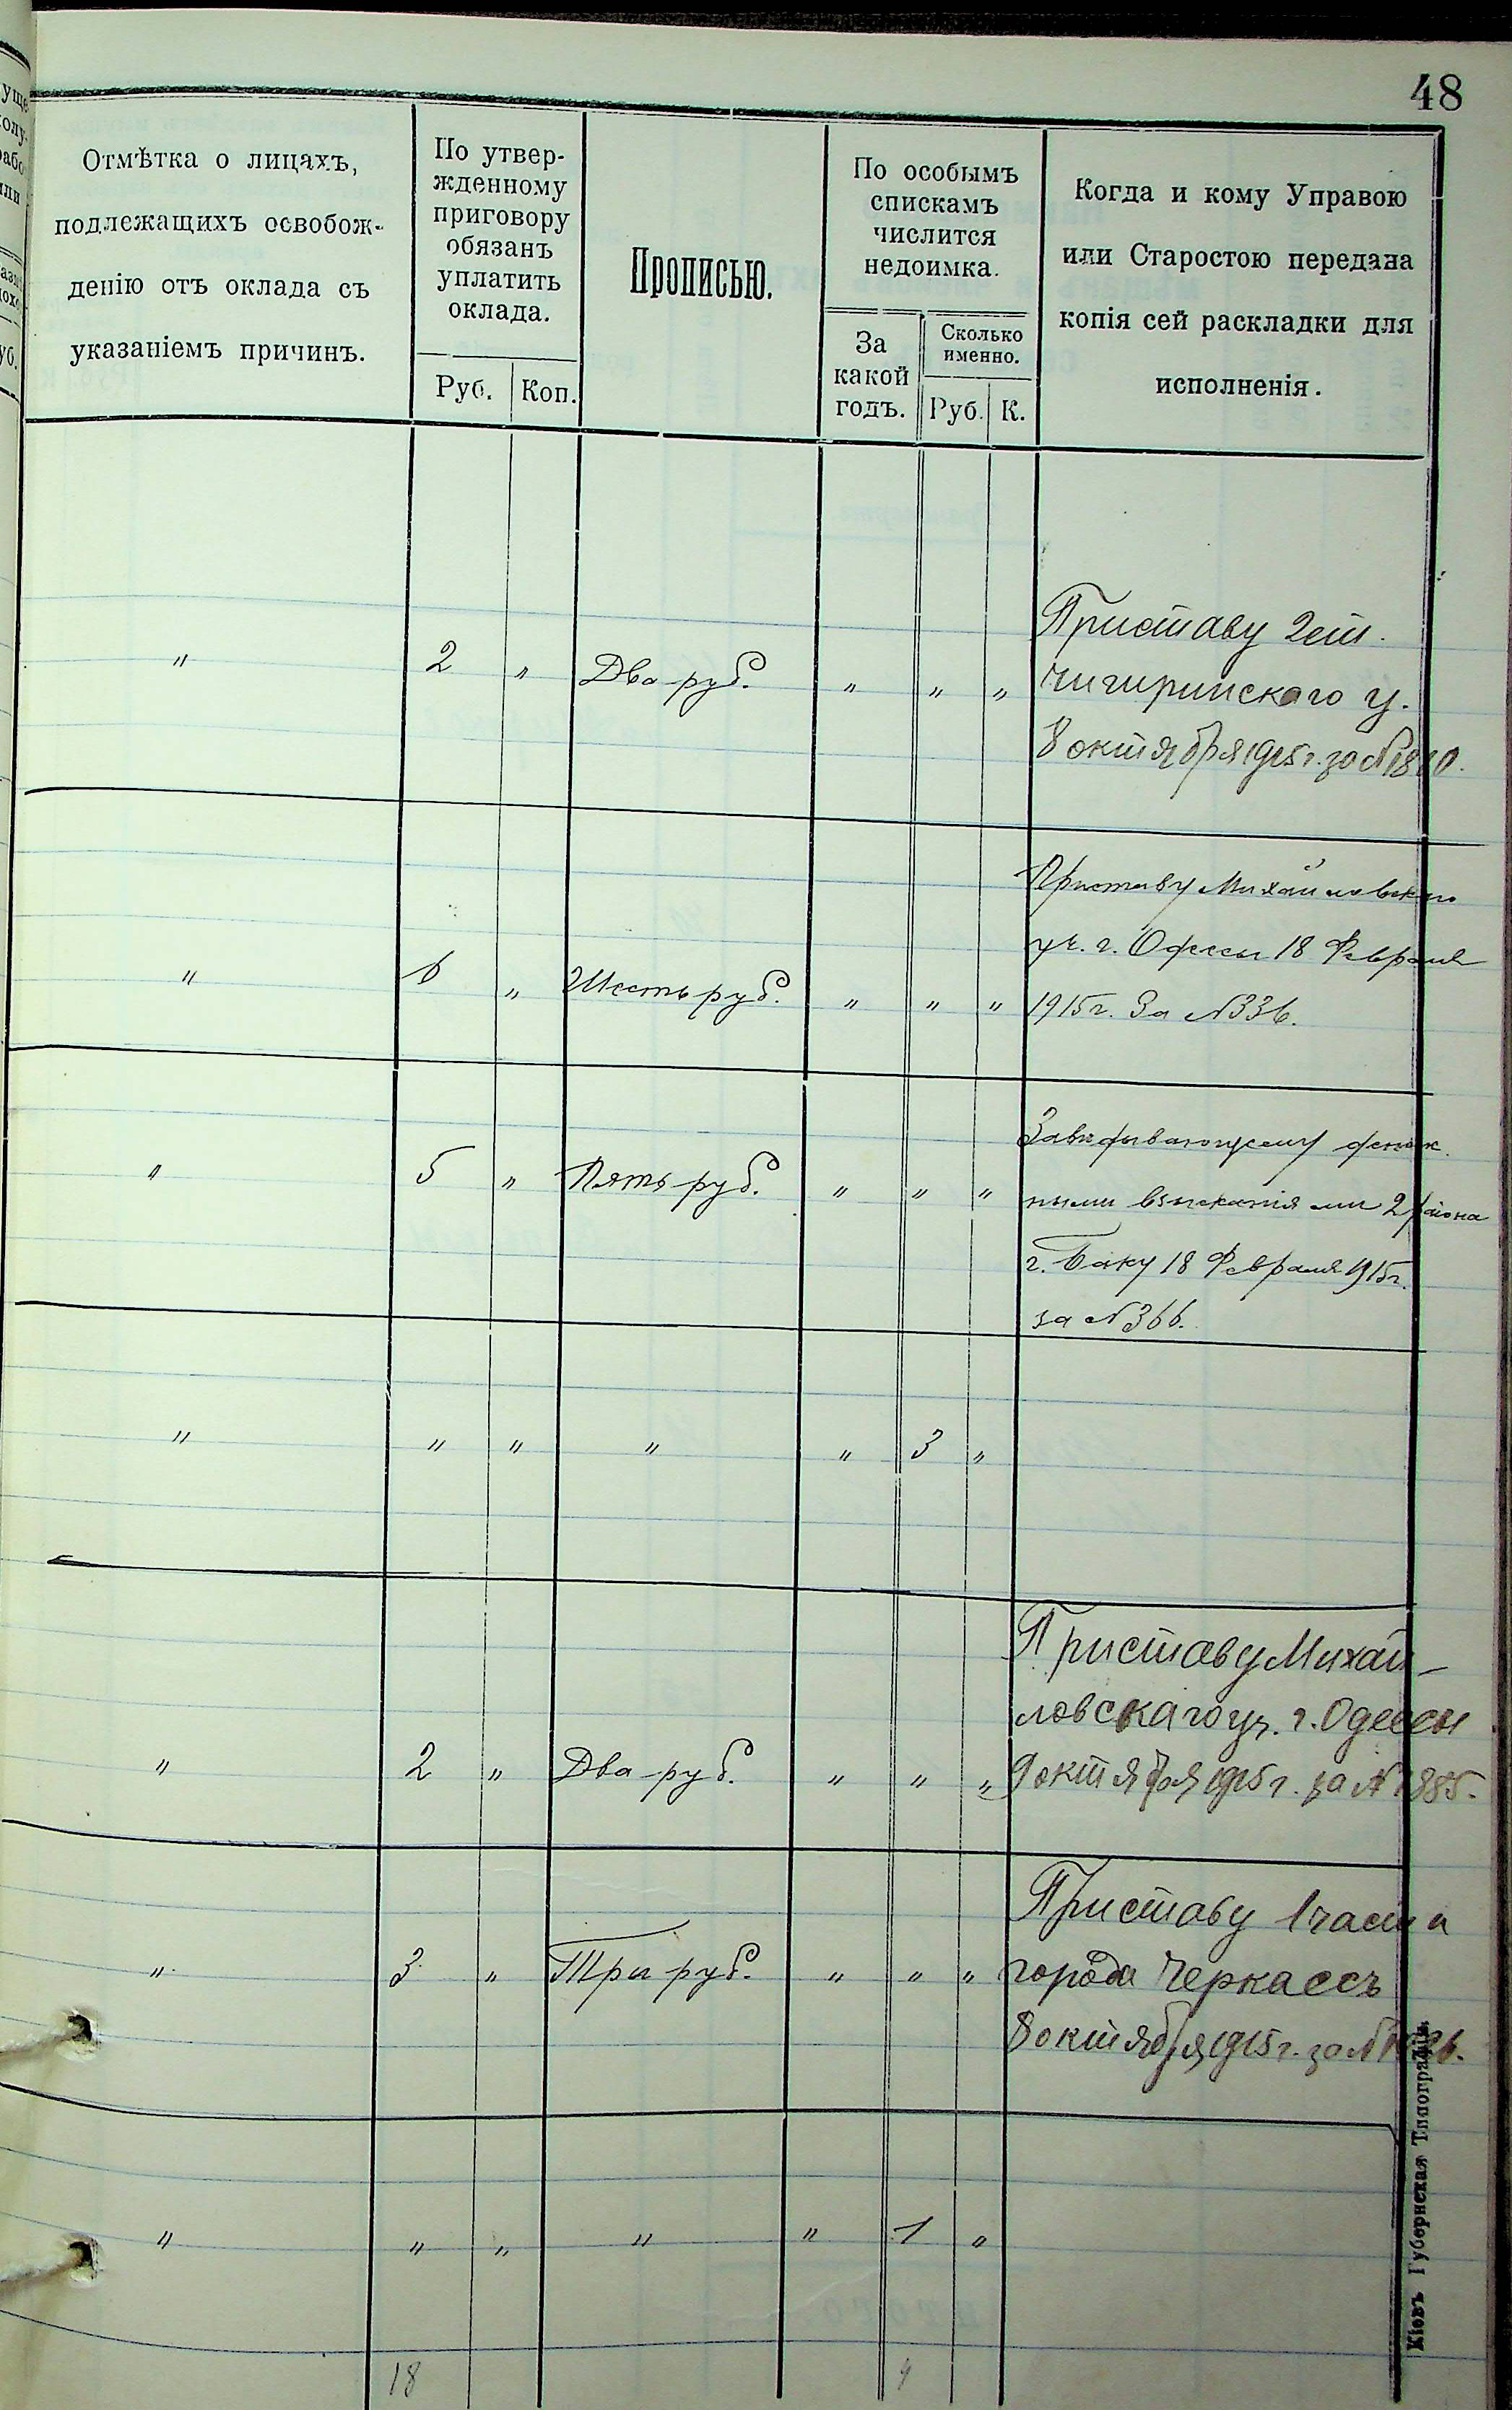 48
Отмѣтка о лицахъ,
подлежащихъ освобож-
денію отъ оклада съ
указаніемъ причинъ.
По утвер-
жденному
приговору
обязанъ
уплатить
оклада.
Руб. Коп.
Прописью.
По особымъ
спискамъ
числится
недоимка.
За
какой
годъ.
Сколько
именно.
Руб. К.
Когда и кому Управою
или Старостою передана
копія сей раскладки для
исполненія.
" 2 " Два руб. " " "
Приставу 2 ст.
Чигиринскаго у.
8 октября 1915 г. за №
" 6 " Шесть руб. " " "
Приставу Михайловскаго
уч. г. Одессы 18 Февраля
1915 г. За № 336.
" 5 " Пять руб. " " "
Завѣдывающему
ными взысканіями 2 района
г. Баку 18 Февраля 1915 г.
за № 366.
" " " " " 3 "
" 2 " Два руб. " " "
Приставу Михай-
ловскаго уч. г. Одессы
9 октября 1915 г. за № 1885.
" 3 " Три руб. " " "
Приставу 1 части
города Черкассъ
8 октября 1915 г. за №
" " " " " 1 "
18 4
Кіевъ Губернская Типографія.